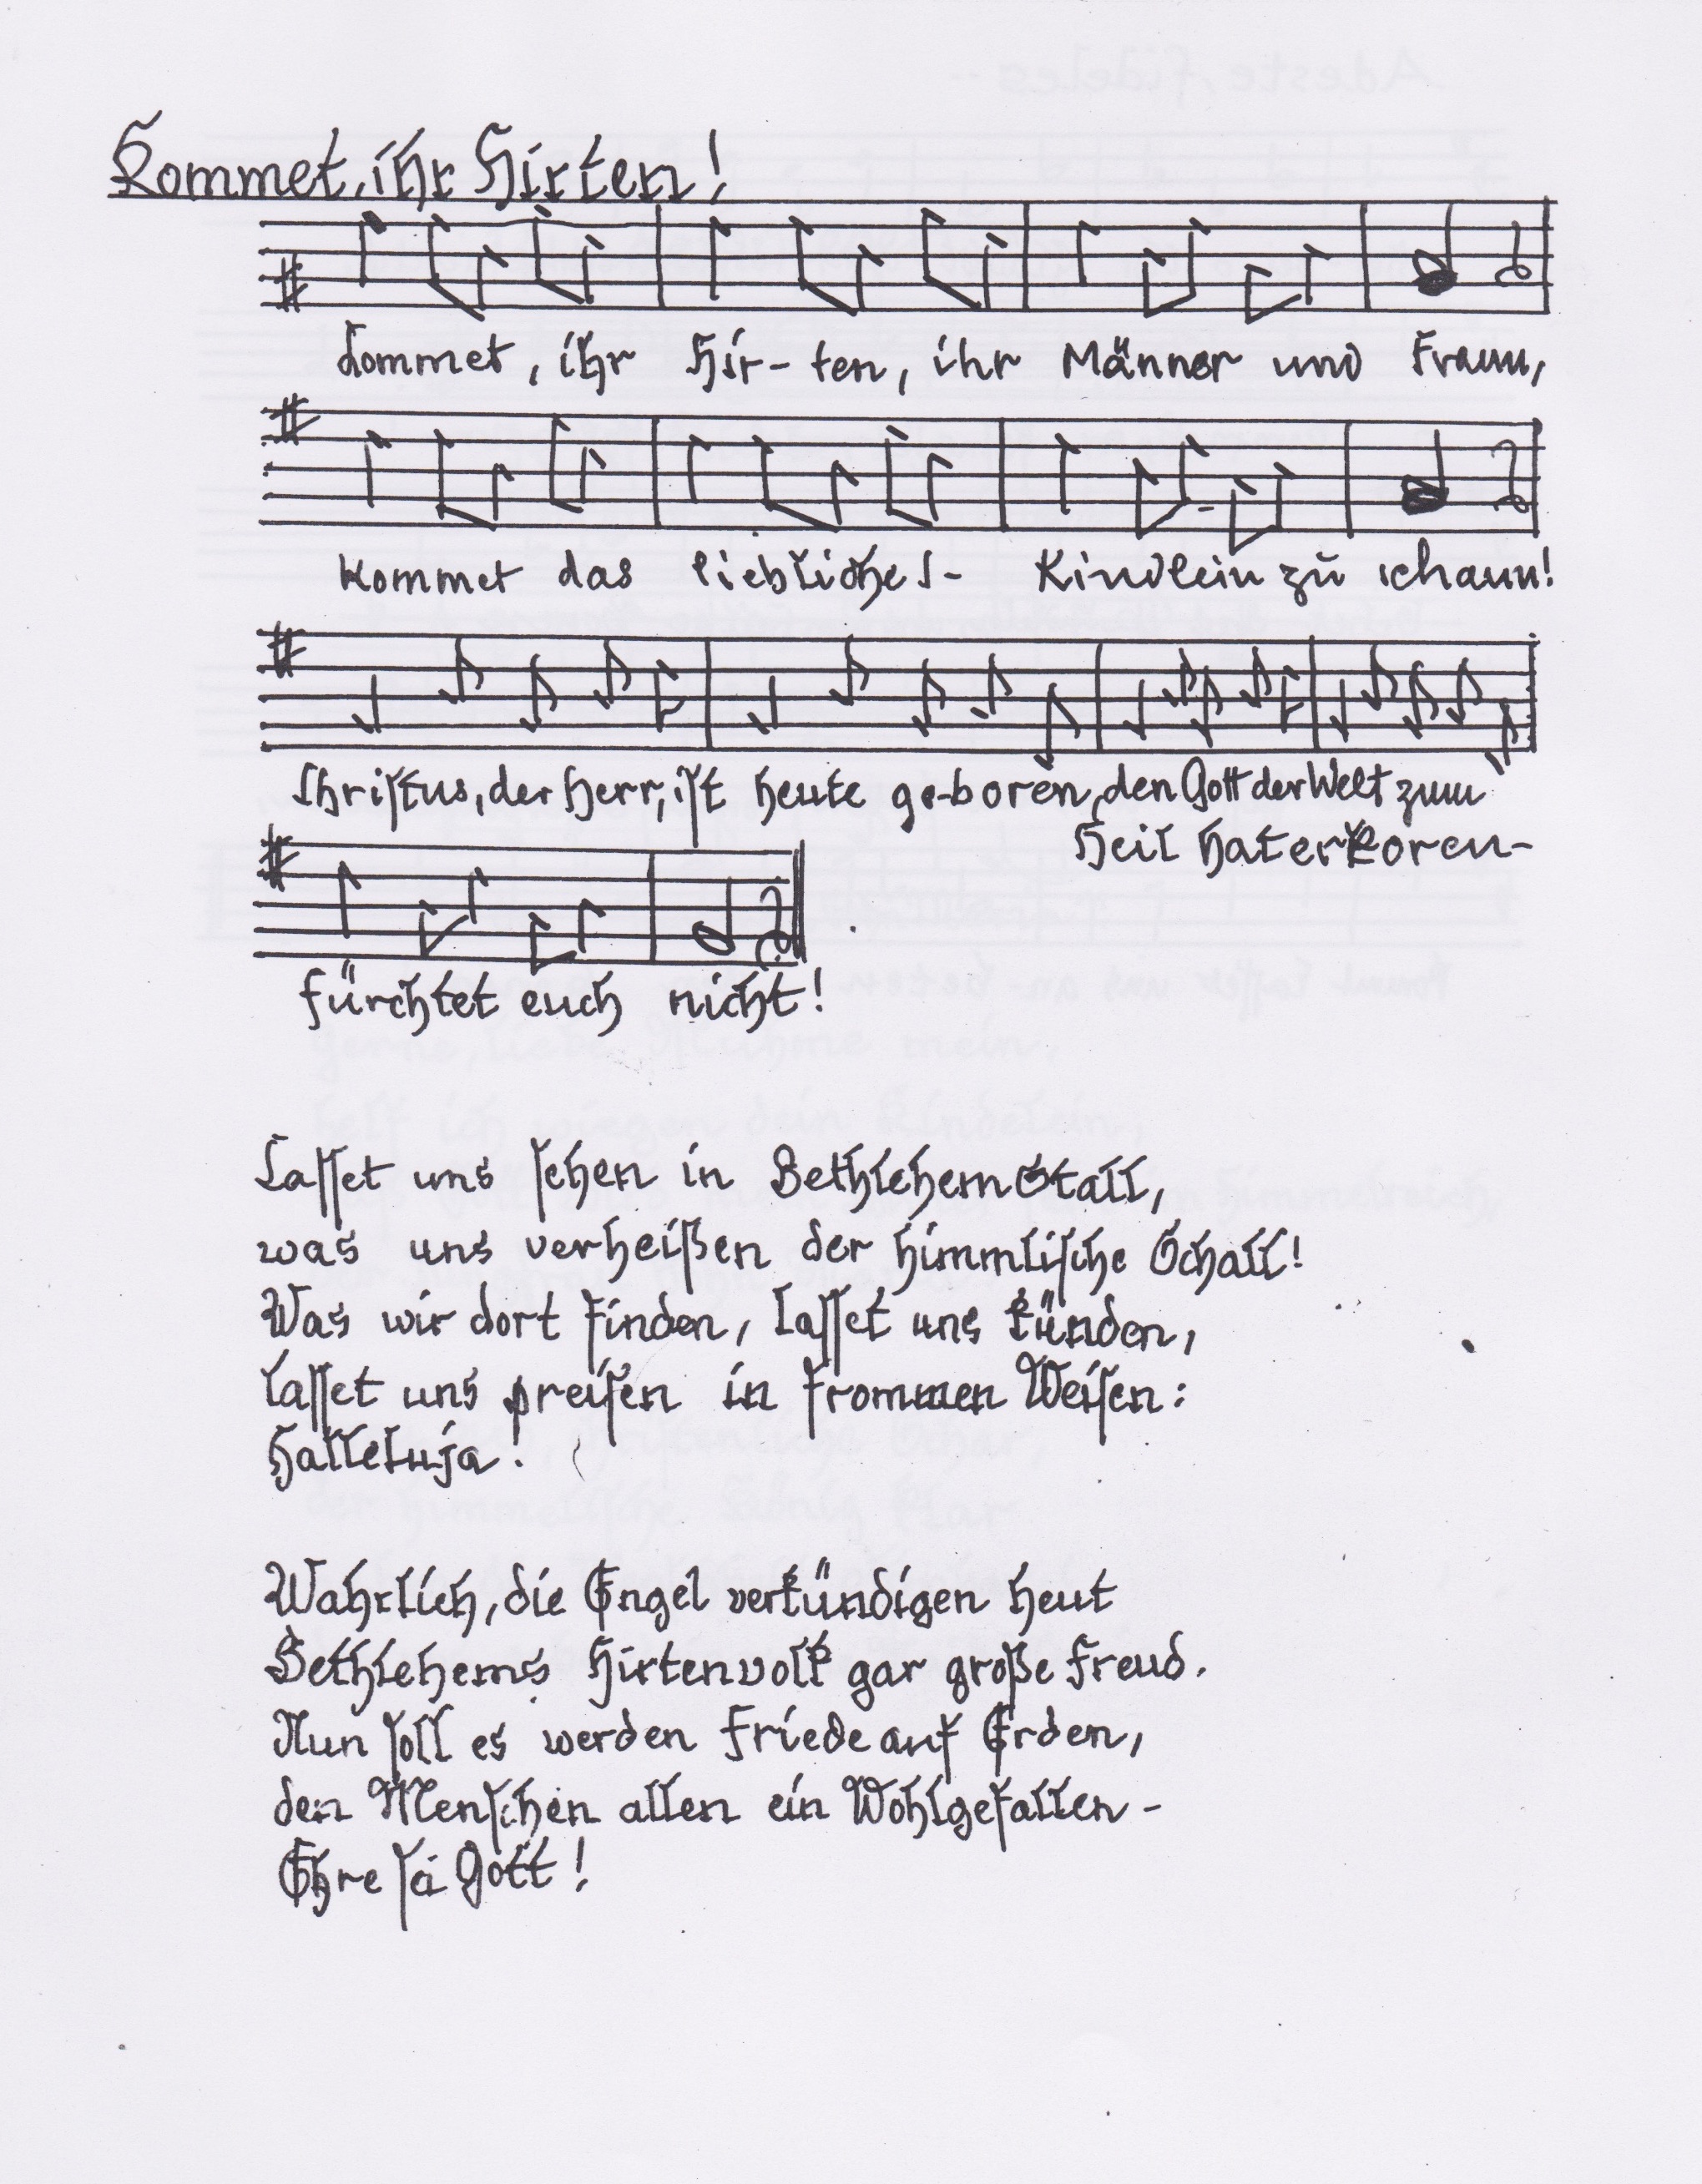 Kommet, ihr Hirten!
Kommet, ihr Hir- ten, ihr Männer und Fraun,
kommet das liebliche s- Kindlein zu schaun!
Christus, der Herr, ist heute ge-boren, den Gott der Welt zum
Heil hat erkoren-
fürchtet euch nicht!
Lasset uns sehen in Bethlehem Stall,
was uns verheißen der himmlische Schall!
Was wir dort finden, lasset uns künden,
lasset uns preisen in frommen Weisen:
Halleluja!
Wahrlich, die Engel verkündigen heut
Bethlehems Hirtenvolk gar große Freud.
Nun soll es werden Friede auf Erden,
den Menschen allen ein Wohlgefallen-
Ehre sei Gott!